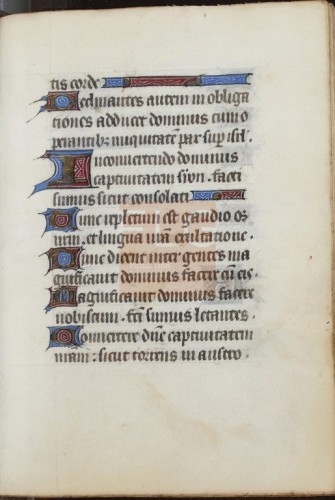 tis corde
Declinantes autem in obliga
tiones adducet dominus cum o
perantibz iniquitatē pax sup isrl.
In convertendo dominus
captivitatem syon. facti
sumus sicut consolati
Tunc repletum est gaudio os
nrm. et lingua nrā exultatione.
Tunc dicent inter gentes ma
gnificavit dominus facere cū eis.
Magnificavit dominus facere
nobiscum. fcī sumus letantes.
Convertere dn̄e captivitatem
nram. sicut torrens in austro.